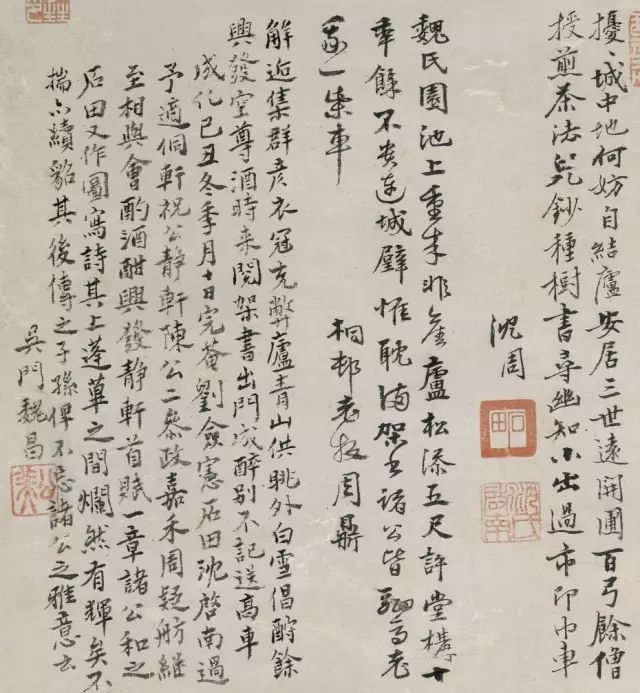 擾〻城中地何妨自結廬安居三世遠開圃百弓餘僧
授煎茶法兒鈔種樹書尋幽知小出過市即巾車
沈周
石田
魏氏園池上重來非舊廬松添五尺許堂構十
年餘不愛連城璧惟耽滿架書諸公皆駟馬老
我一柴車
桐邨老牧周鼎
解逅集群彥衣冠充弊廬青山供眺外白雪倡酬餘
興發空尊酒時来閱架書出門成醉別不記送高車
成化己丑冬季月十日完菴劉僉憲石田沈啓南過
予適侗軒祝公靜軒陳公二參政嘉禾周疑舫継
至相與會酌酒酣興發靜軒首賦一章諸公和之
石田又作圖寫詩其上蓬蓽之間爛然有輝矣不
揣亦續貂其後傳之子孫俾不忘諸公之雅意云
吳門魏昌